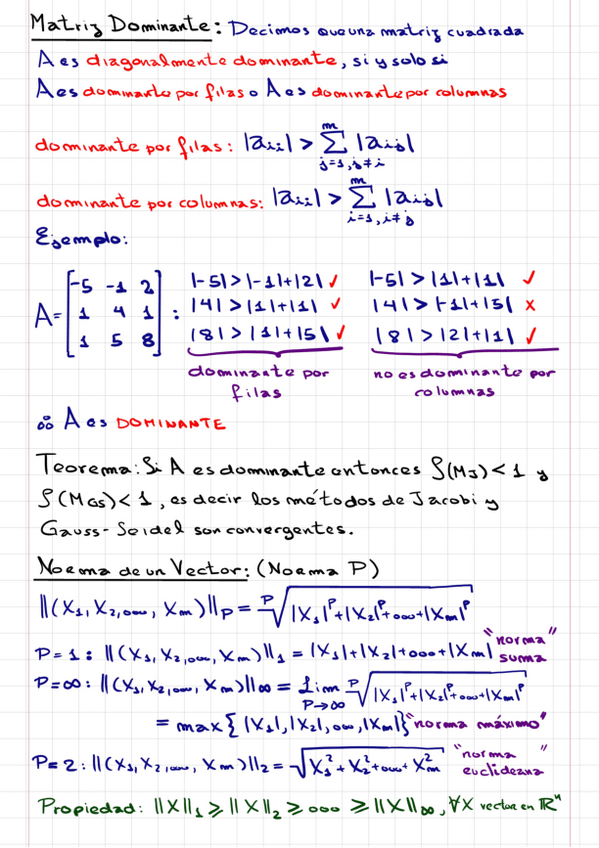 Matriz Dominante: Decimos que una matriz cuadrada
A es diagonalmente dominante, si y solo si
A es dominante por filas o A es dominante por columnas
dominante por filas: |aᵢᵢ| > Σ_{j=1, j≠i}^{m} |aᵢⱼ|
dominante por columnas: |aᵢᵢ| > Σ_{i=1, i≠j}^{m} |aᵢⱼ|
Ejemplo:
A = [-5 -1 2; 1 4 1; 1 5 8] :
|-5| > |-1|+|2| ✓
|4| > |1|+|1| ✓
|8| > |1|+|5| ✓
dominante por
filas
|-5| > |1|+|1| ✓
|4| > |-1|+|5| x
|8| > |2|+|1| ✓
no es dominante por
columnas
∴ A es DOMINANTE
Teorema: Si A es dominante entonces ρ(M_J) < 1 y
ρ(M_GS) < 1, es decir los métodos de Jacobi y
Gauss-Seidel son convergentes.
Norma de un Vector: (Norma P)
||(X₁, X₂, ..., Xm)||p = ᴾ√(|X₁|ᴾ + |X₂|ᴾ + ... + |Xm|ᴾ)
P=1: ||(X₁, X₂, ..., Xm)||₁ = |X₁| + |X₂| + ... + |Xm| "norma suma"
P=∞: ||(X₁, X₂, ..., Xm)||∞ = Lim_{P→∞} ᴾ√(|X₁|ᴾ + |X₂|ᴾ + ... + |Xm|ᴾ)
= max{|X₁|, |X₂|, ..., |Xm|} "norma máximo"
P=2: ||(X₁, X₂, ..., Xm)||₂ = √(X₁² + X₂² + ... + Xm²) "norma euclideana"
Propiedad: ||X||₁ ≥ ||X||₂ ≥ ... ≥ ||X||∞, ∀X vector en ℝⁿ